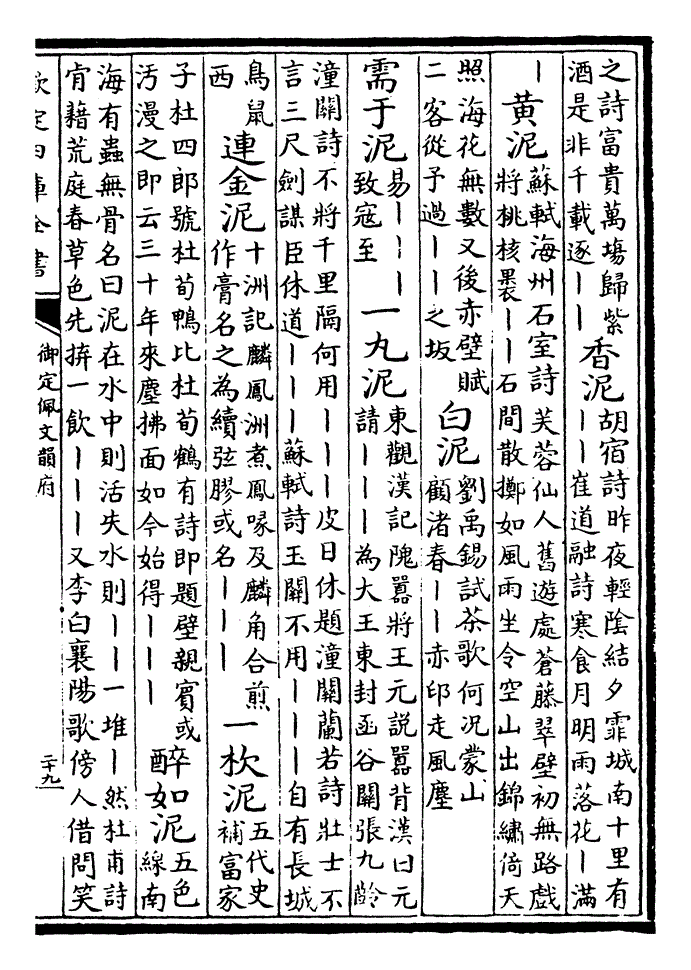 之詩富貴萬塲歸紫
酒是非千載逐丨丨
香泥
胡宿詩昨夜輕陰結夕霏城南十里有
丨丨崔道融詩寒食月明雨落花丨滿
丨
黄泥
蘇軾海州石室詩芙蓉仙人舊遊處蒼藤翠壁初無路戲
將桃核褁丨丨石間散擲如風雨坐令空山出錦繡倚天
照海花無數又後赤壁賦
二客從予過丨丨之坂
白泥
劉禹錫試茶歌何况蒙山
顧渚春丨丨赤印走風塵
需于泥
易丨丨丨
致寇至
一丸泥
東觀漢記隗囂將王元説囂背漢曰元
請丨丨丨為大王東封函谷關張九齡
潼關詩不將千里隔何用丨丨丨皮日休題潼關蘭若詩壯士不
言三尺劍謀臣休道丨丨丨蘇軾詩玉關不用丨丨丨自有長城
鳥鼠
西
連金泥
十洲記麟鳳洲煮鳳喙及麟角合煎
作膏名之為續弦膠或名丨丨丨
一杴泥
五代史
補富家
子杜四郎號杜荀鴨比杜荀鶴有詩即題壁親賓或
汚漫之即云三十年來塵拂面如今始得丨丨丨
醉如泥
五色
線南
海有蟲無骨名曰泥在水中則活失水則丨丨一堆丨然杜甫詩
肯藉荒庭春草色先拚一飲丨丨丨又李白襄陽歌傍人借問笑
欽定四庫全書
御定佩文韻府
二十九